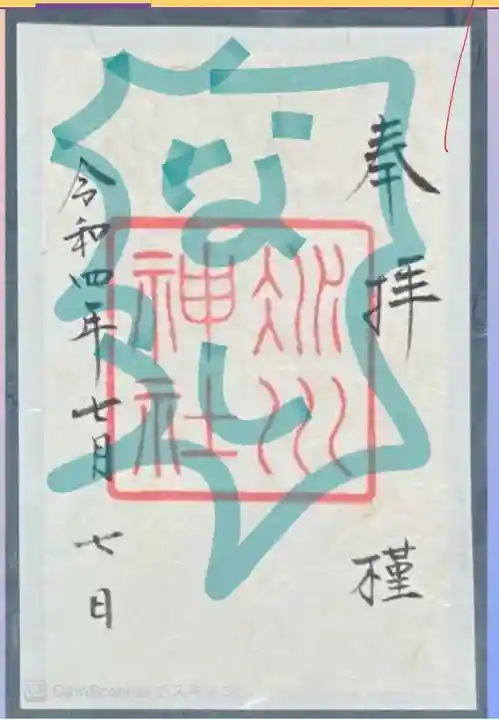 奉拝 槿
冰川
神社
なし
令和四年七月七日
CamScanner でスキャン